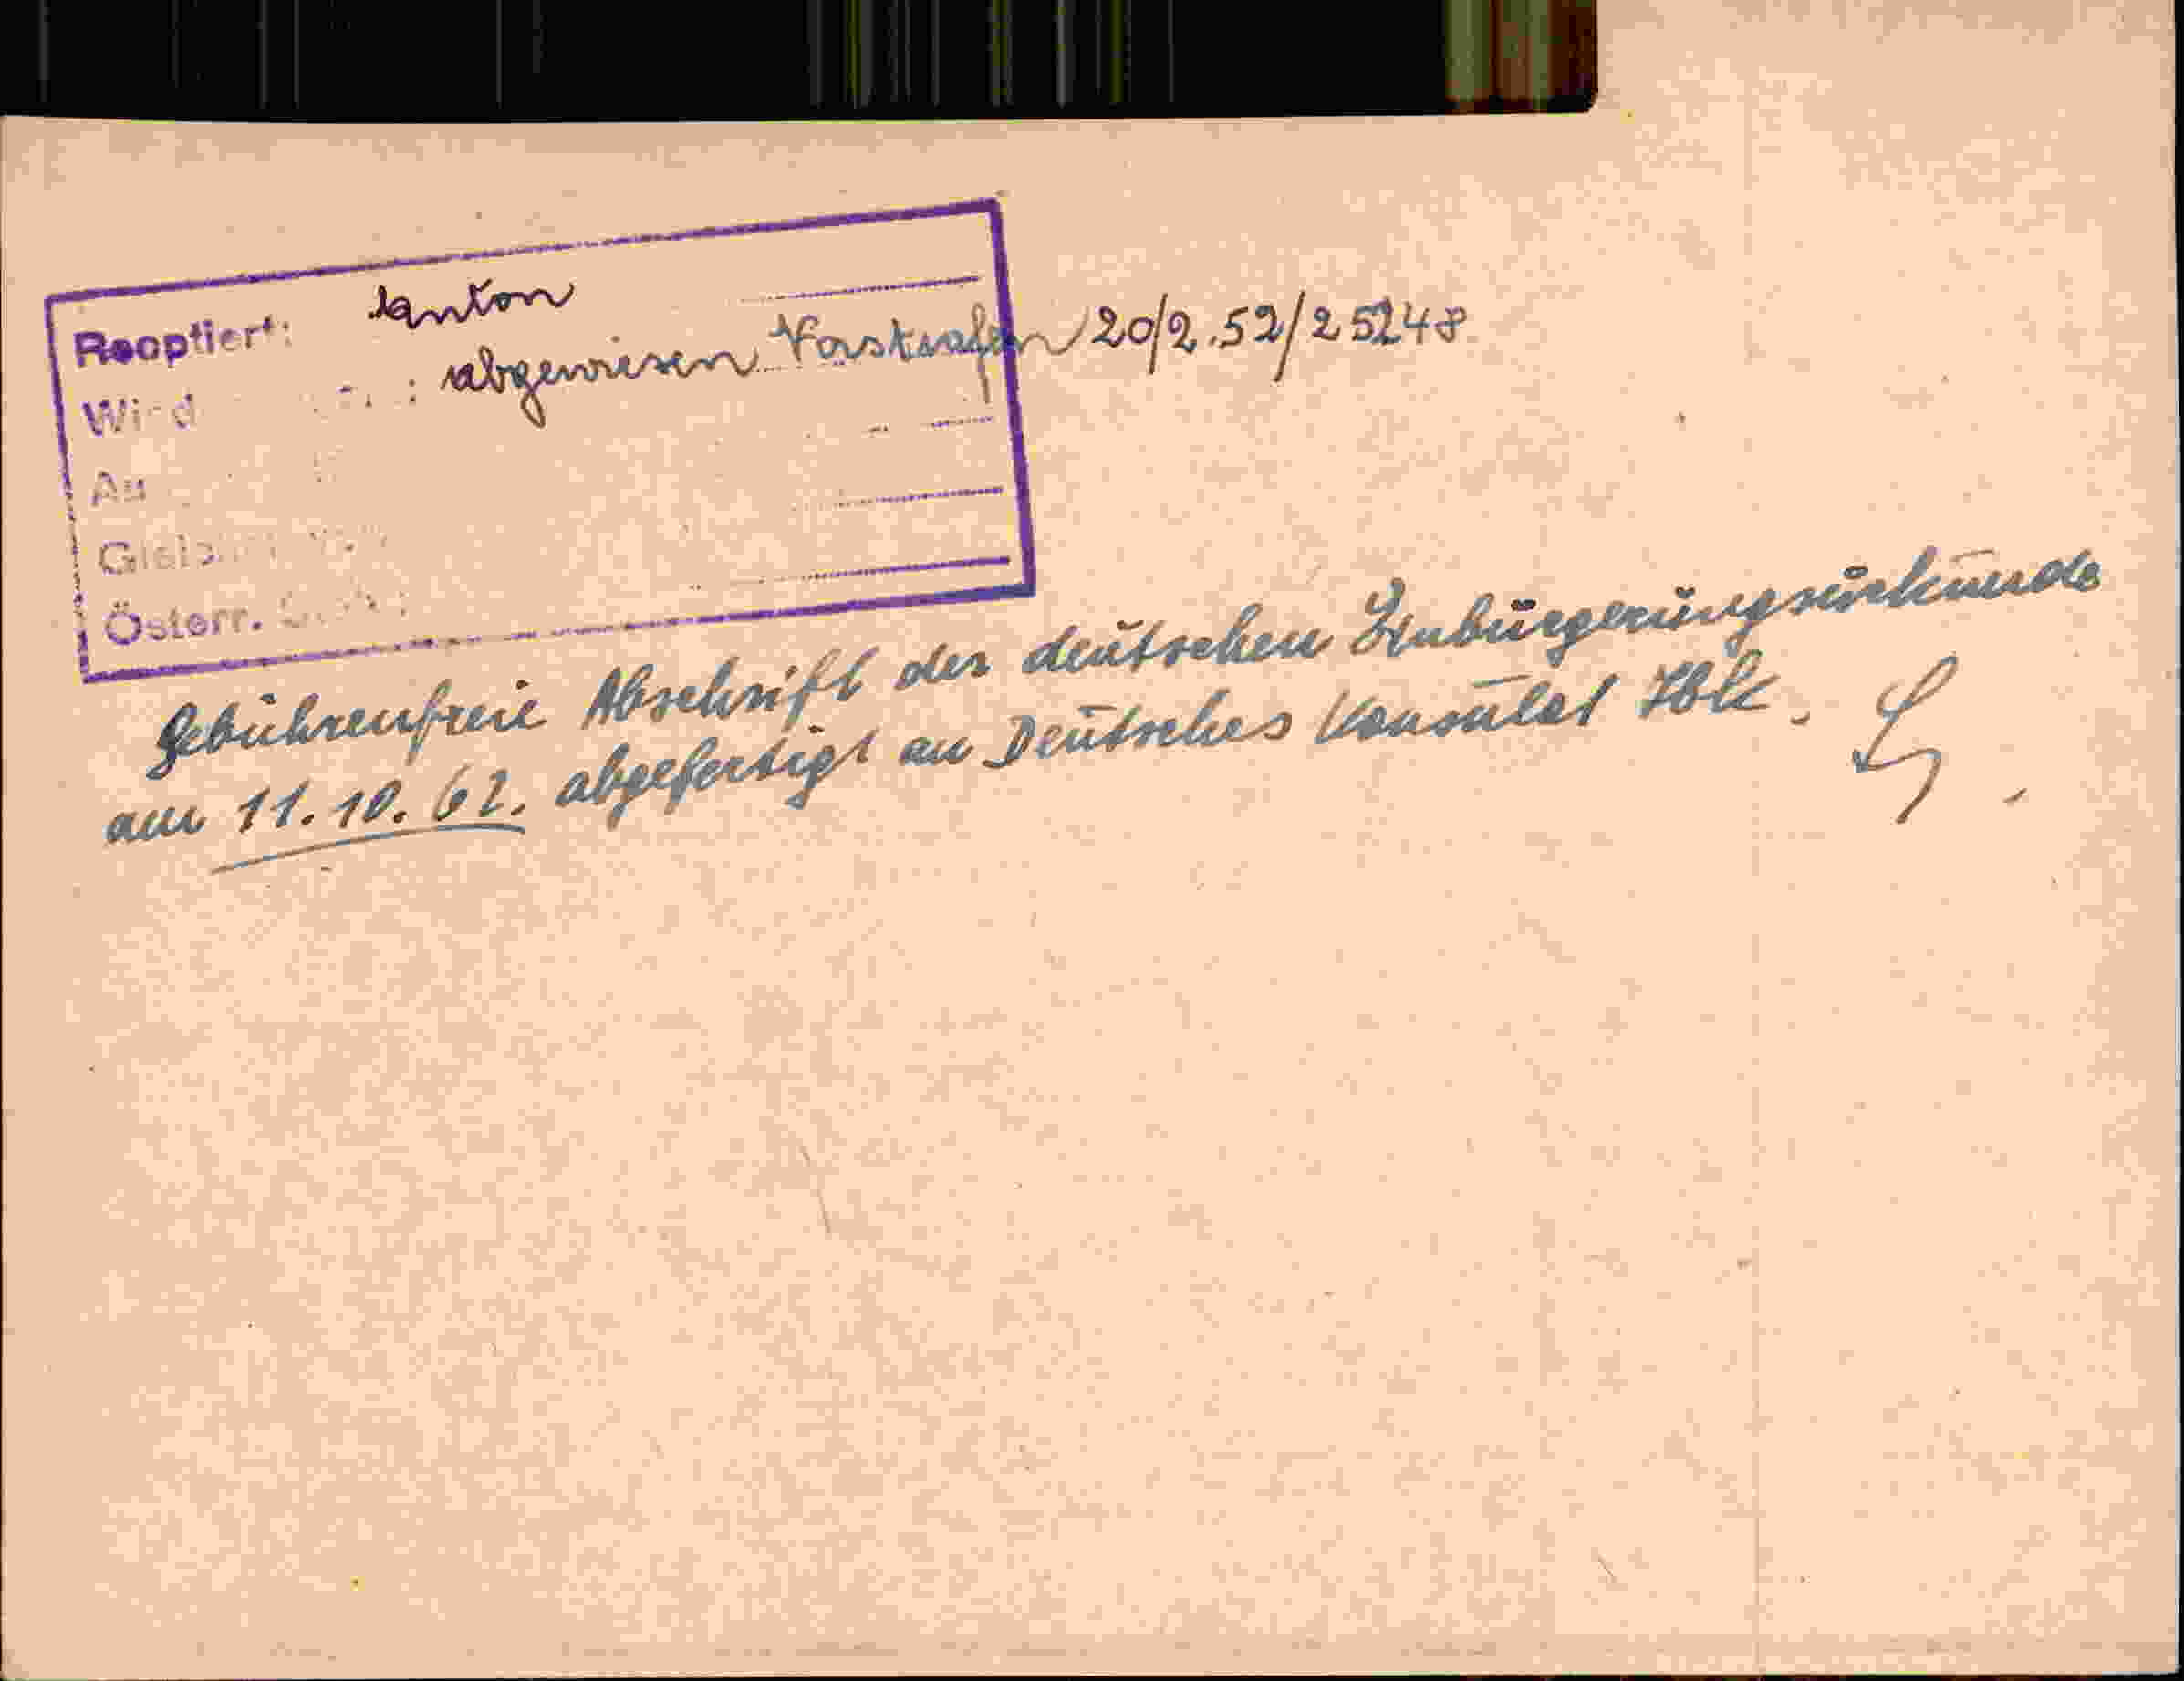 Reoptiert: Anton
Wird : abgewiesen Vorstrafen 20/2.52/25248
Au
Österr.
Gebührenfreie Abschrift der deutschen Einbürgerungsurkunde
am 11.10.62. abgefertigt an Deutsches Konsulat Ibk.